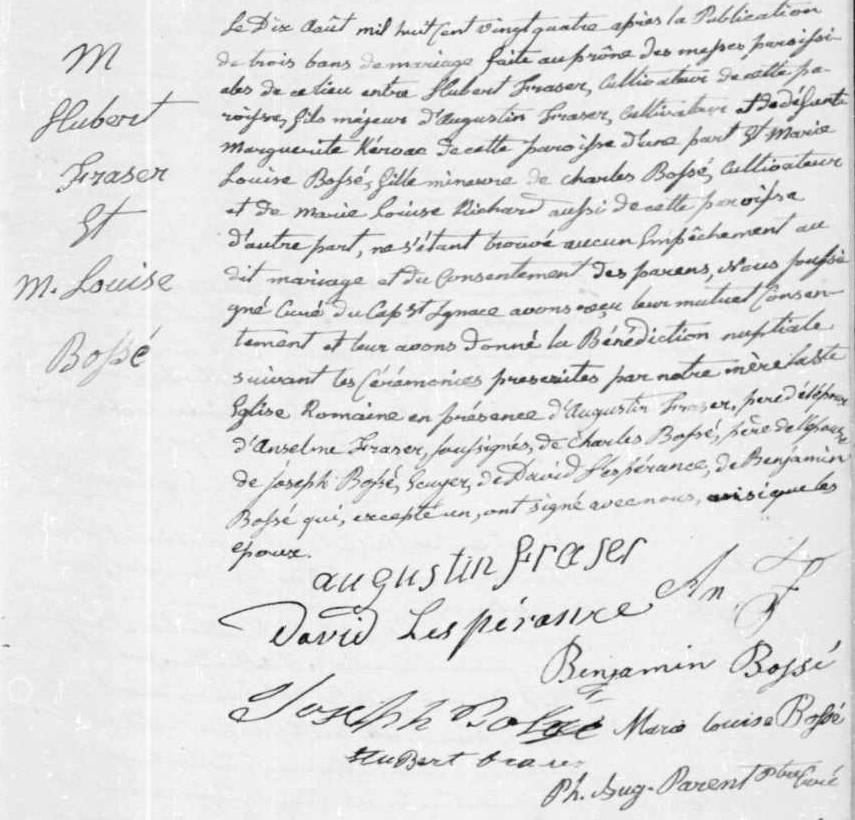 M
Hubert
Fraser
Et
M. Louise
Bossé
Le Dix Août mil huit Cent vingt quatre après la Publication
de trois bans de mariage faite au prône des messes paroissi-
ales de ce lieu entre Hubert Fraser, Cultivateur de cette pa-
roisse, fils majeur d'Augustin Fraser, Cultivateur et de défunte
Marguerite Kéroac de cette paroisse d'une part Et Marie
Louise Bossé, fille mineure de Charles Bossé, Cultivateur
et de Marie Louise Richard aussi de cette paroisse
d'autre part, ne s'étant trouvé aucun Empêchement au
dit mariage et du Consentement des parens, Nous soussi
gné Curé du Cap St Ignace avons reçu leur mutuel Consen-
tement et leur avons donné la Bénédiction nuptiale
suivant les Cérémonies prescrites par notre mère la Ste
Eglise Romaine en présence d'Augustin Fraser, père de l'époux
d'Anselme Fraser, soussignés, de Charles Bossé, père de l'épouse
de Joseph Bossé, Ecuyer, de David Lespérance, de Benjamin
Bossé qui, excepté un, ont signé avec nous, ainsi que les
époux.
augustin fraser
David Lespérance An. F
Benjamin Bossé
Joseph Bossé Marie Louise Bossé
HuBert
Ph. Aug. Parent Ptre Curé